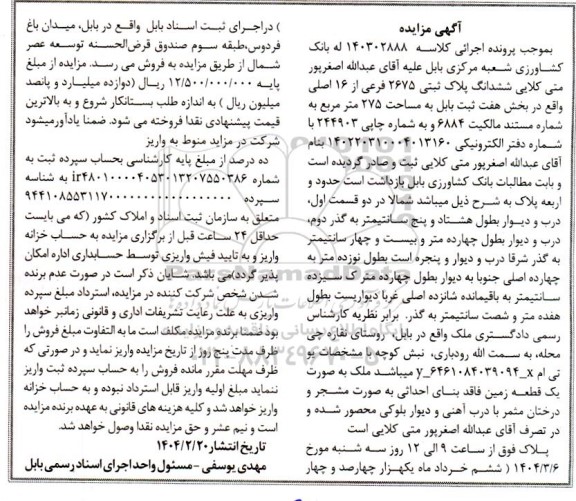 آگهی مزایده
بموجب پرونده اجرائی کلاسه ۱۴۰۳۰۲۸۸۸ له بانک
کشاورزی شعبه مرکزی بابل علیه آقای عبدالله اصغرپور
متی کلایی ششدانگ پلاک ثبتی ۲۶۷۵ فرعی از ۱۶ اصلی
واقع در بخش هفت ثبت بابل به مساحت ۲۷۵ متر مربع به
شماره مستند مالکیت ۶۸۸۴ و به شماره چاپی ۲۴۴۹۰۳ با
شماره دفتر الکترونیکی ۱۴۰۲۲۰۳۱۰۰۰۴۰۱۳۱۶۰ بنام
آقای عبدالله اصغرپور متی کلایی ثبت و صادر گردیده است
و بابت مطالبات بانک کشاورزی بابل بازداشت است حدود و
اربعه پلاک به شرح ذیل میباشد شمالا در دو قسمت اول،
درب و دیوار بطول هشتاد و پنج سانتیمتر به گذر دوم،
درب و دیوار بطول چهارده متر و بیست و چهار سانتیمتر
به گذر شرقا درب و دیوار و پنجره است بطول نوزده متر به
چهارده اصلی جنوبا به دیوار بطول چهارده متر و سیزده
سانتیمتر به باقیمانده شانزده اصلی غربا دیواریست بطول
هفده متر و شصت سانتیمتر به گذر. برابر نظریه کارشناس
رسمی دادگستری ملک واقع در بابل، روستای نقاره چی
محله، به سمت الله رودباری، نبش کوچه با مشخصات یو
تی ام y_۶۴۶۱۰۸۴۰۳۹۰۹۴_x میباشد ملک به صورت
یک قطعه زمین فاقد بنای احداثی به صورت مشجر و
درختان مثمر با درب آهنی و دیوار بلوکی محصور شده و
در تصرف آقای عبدالله اصغرپور متی کلایی است
پلاک فوق از ساعت ۹ الی ۱۲ روز سه شنبه مورخ
۱۴۰۴/۳/۶ ( ششم خرداد ماه یکهزار چهارصد و چهار
) دراجرای ثبت اسناد بابل واقع در بابل، میدان باغ
فردوس،طبقه سوم صندوق قرض‌الحسنه توسعه عصر
شمال از طریق مزایده به فروش می رسد. مزایده از مبلغ
پایه ۱۲/۵۰۰/۰۰۰/۰۰۰ ریال (دوازده میلیارد و پانصد
میلیون ریال ) به اندازه طلب بستانکار شروع و به بالاترین
قیمت پیشنهادی نقدا فروخته می شود. ضمنا یادآورمیشود
شرکت در مزاید منوط به واریز
ده درصد از مبلغ پایه کارشناسی بحساب سپرده ثبت به
شماره ir۴۸۰۱۰۰۰۰۴۰۵۳۰۱۳۲۰۷۵۵۰۳۸۶ به شناسه
سپرده
متعلق به سازمان ثبت اسناد و املاک کشور (که می بایست
حداقل ۲۴ ساعت قبل از برگزاری مزایده به حساب خزانه
واریز و به تایید فیش واریزی توسط حسابداری اداره امکان
پذیر گردد)می باشد. شایان ذکر است در صورت عدم برنده
شدن شخص شرکت کننده در مزایده، استرداد مبلغ سپرده
واریزی به علت رعایت تشریفات اداری و قانونی زمانبر خواهد
بود ضمنا برنده مزایده مکلف است ما به التفاوت مبلغ فروش را
ظرف مدت پنج روز از تاریخ مزایده واریز نماید و در صورتی که
ظرف مهلت مقرر مانده فروش را به حساب سپرده ثبت واریز
ننماید مبلغ اولیه واریز قابل استرداد نبوده و به حساب خزانه
واریز خواهد شد و کلیه هزینه های قانونی به عهده برنده مزایده
است و نیم عشر و حق مزایده نقدا وصول خواهد شد.
تاریخ انتشار:۱۴۰۴/۲/۲۰
مهدی یوسفی - مسئول واحد اجرای اسناد رسمی بابل